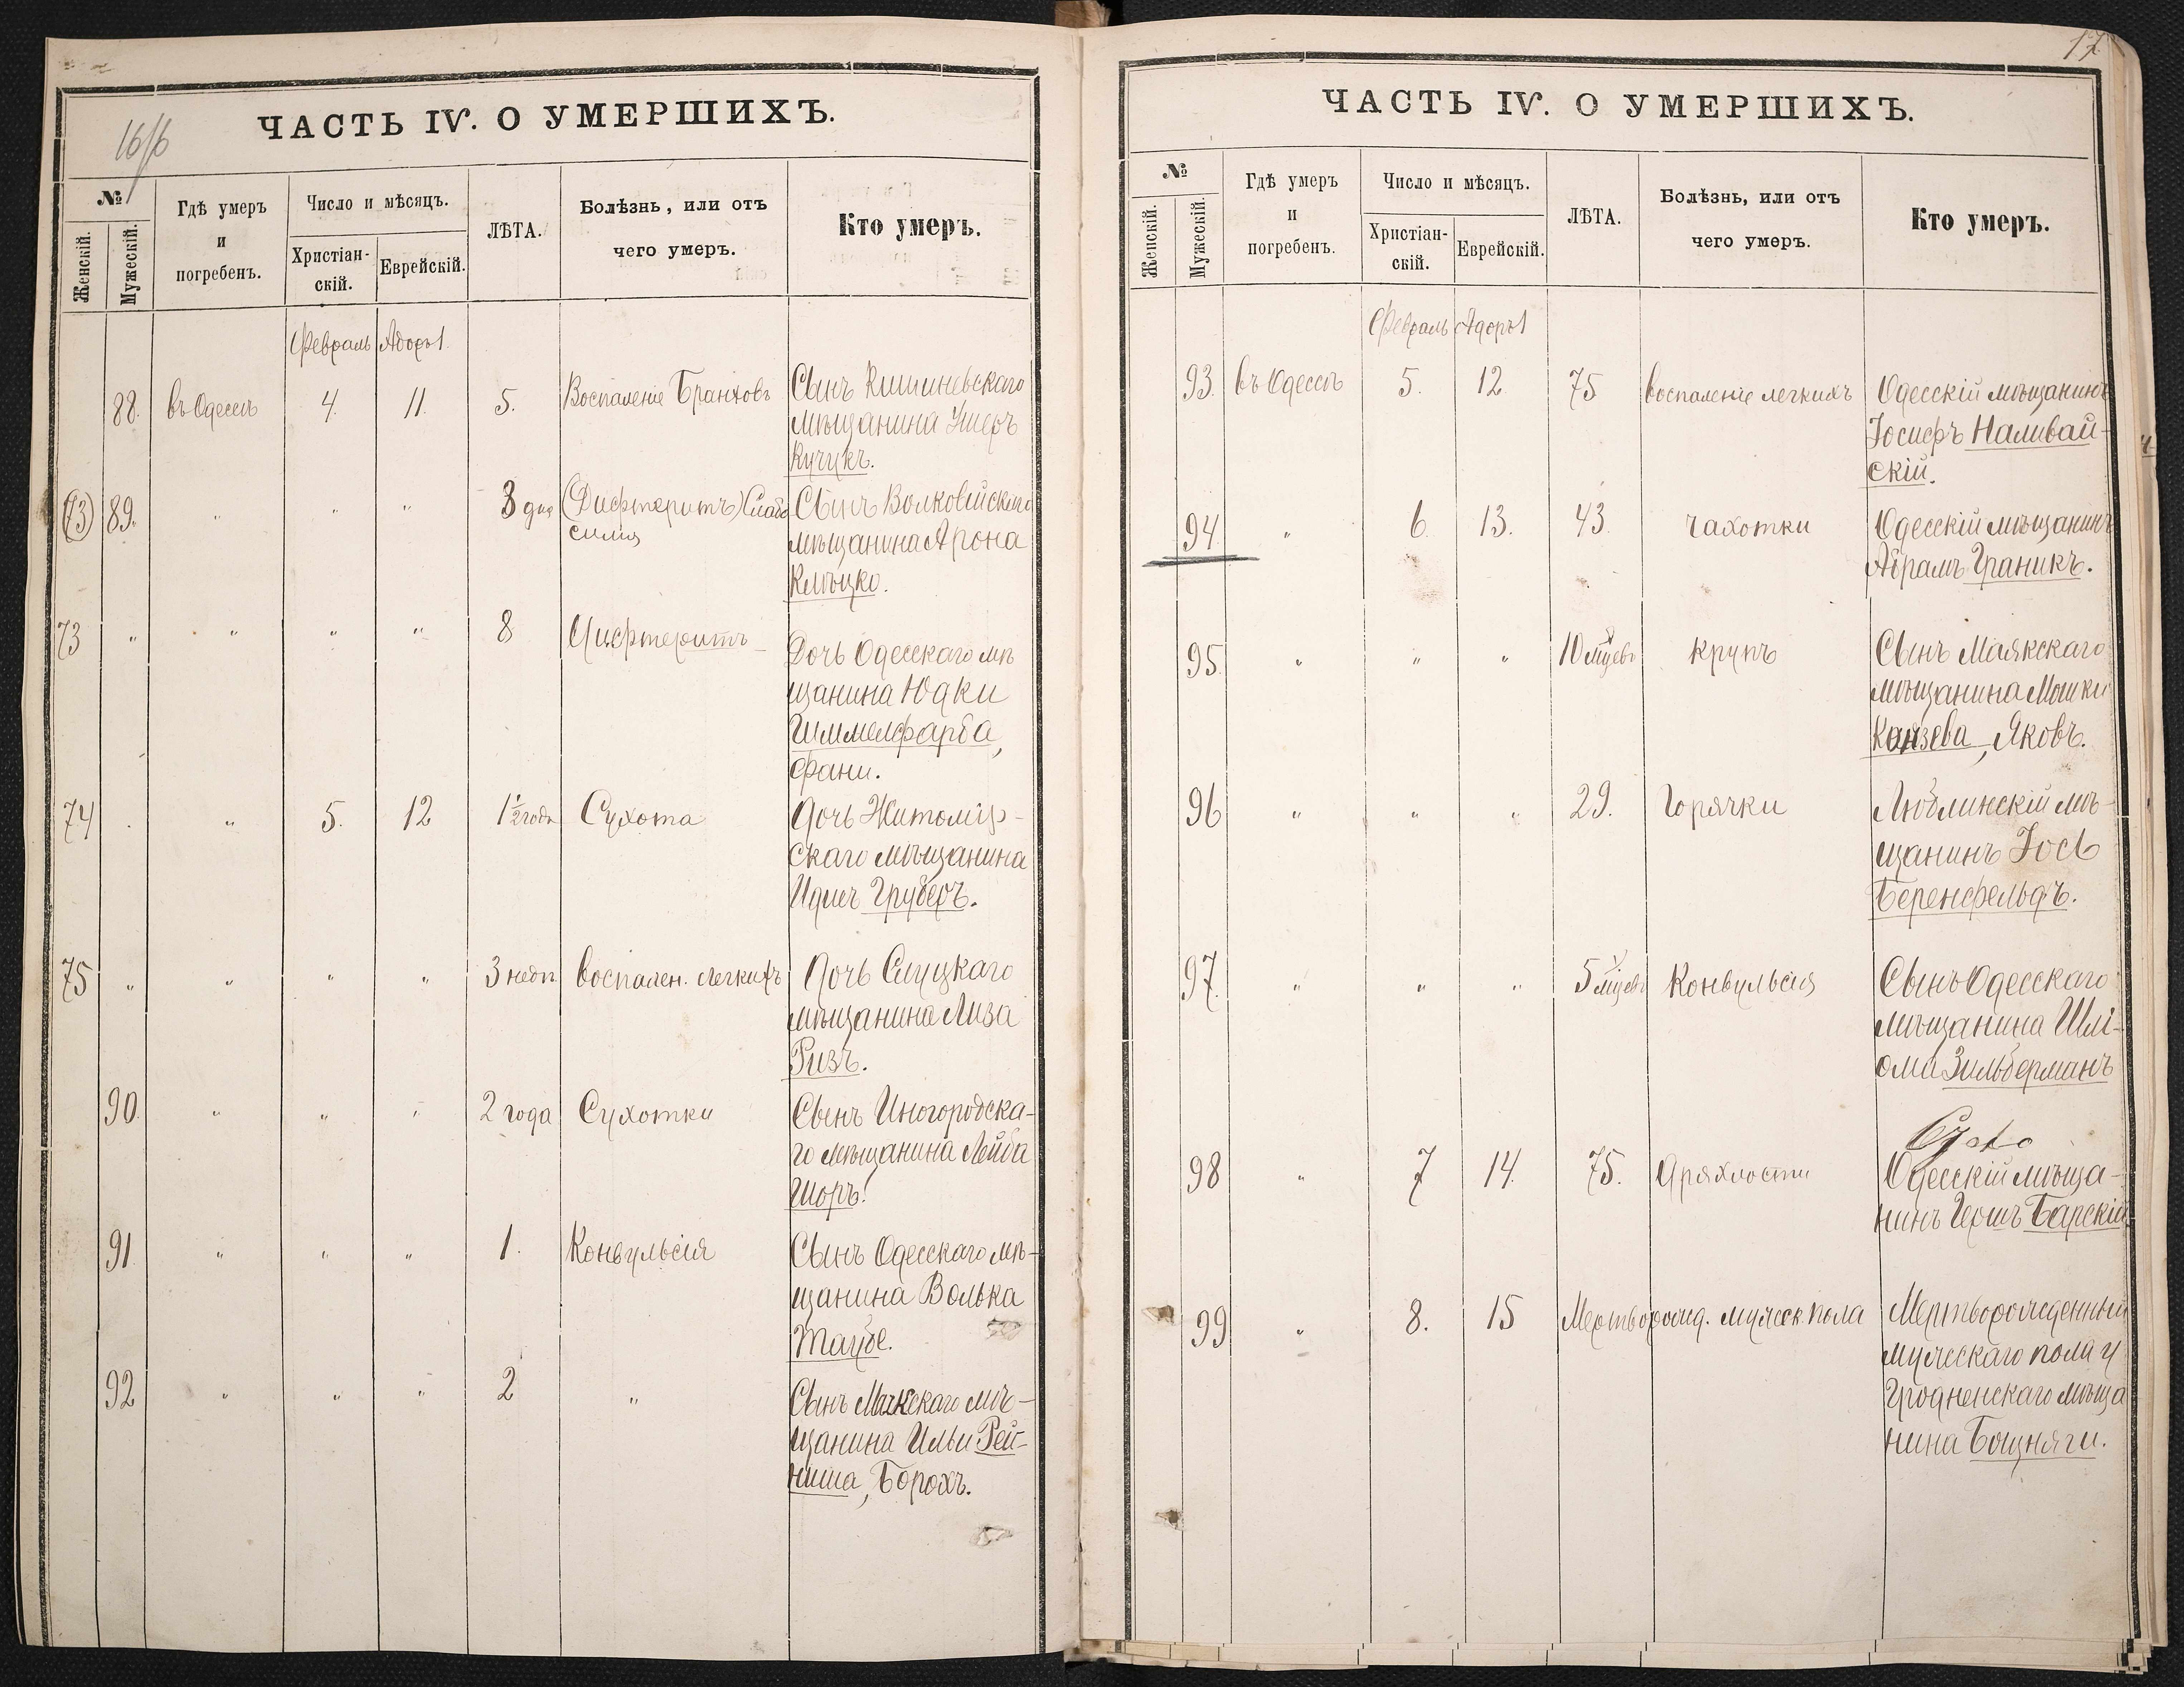 16/6
ЧАСТЬ IV. О УМЕРШИХЪ.
№
Женскій.
Мужескій.
Гдѣ умеръ
и
погребенъ.
Число и мѣсяцъ.
Христіан-
скій.
Еврейскій.
ЛѢТА.
Болѣзнь, или отъ
чего умеръ.
Кто умеръ.
Февраль Адоръ 1
88. въ Одессѣ 4. 11. 5. Воспаленіе Бранховъ Сынъ Кишиневскаго
мѣщанина Ушеръ
Кучукъ.
(73) 89. " " " 3 дня (Дифтеритъ) Слабо Сынъ Волковійскаго
силія мѣщанина Арона
Клѣцко.
73 " " " " 8 Дифтеритъ Дочь Одесскаго мѣ
щанина Юдки
Гиммелфарба,
Фани.
74 " 5. 12 1½ года Сухота Дочь Житомір-
скаго мѣщанина
Идисъ Груберъ.
75 " " " " 3 недѣ. Воспален. легкихъ Дочь Слуцкаго
мѣщанина Лиза
Ризъ.
90. " " " 2 года Сухотки Сынъ Иногородска-
го мѣщанина Лейба
Шоръ.
91 " " " 1. Конвульсія Сынъ Одесскаго мѣ-
щанина Волька
Таубе.
92 " " " 2 " Сынъ Маякскаго мѣ-
щанина Ильи Рей-
ниша, Борохъ.
17
ЧАСТЬ IV. О УМЕРШИХЪ.
№
Женскій.
Мужескій.
Гдѣ умеръ
и
погребенъ.
Число и мѣсяцъ.
Христіан-
скій.
Еврейскій.
ЛѢТА.
Болѣзнь, или отъ
чего умеръ.
Кто умеръ.
Февраль Адоръ 1
93. въ Одессѣ 5. 12 75 Воспаленіе легкихъ Одесскій мѣщанинъ
Іосифъ Наливай-
скій.
94. " 6. 13. 43 Чахотки Одесскій мѣщанинъ
Абрамъ Граникъ.
95 " " " 10 мѣцевъ Крупъ Сынъ Маякскаго
мѣщанина Мошки
Князева, Яковъ.
96 " " " 29. Горячки Люблинскій мѣ-
щанинъ Іось
Беренфельдъ.
97. " " " 5 мѣцевъ Конвульсія Сынъ Одесскаго
мѣщанина Шлі-
ома Зильберманъ
98 " 7 14. 75. Дряхлости Одесскій мѣща-
нинъ Гершъ Барскій
99 " 8. 15 Мертворожд. мужеск. пола Мертворожденный
мужескаго пола у
Гродненскаго мѣща
нина Боцняги.